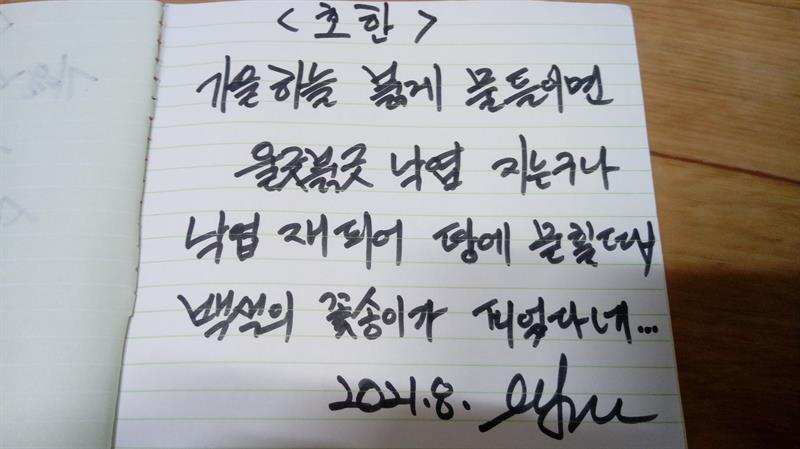 <초한>
가을하늘 붉게 물들이면
울긋붉긋 낙엽 지는구나
낙엽 재되어 땅에 묻힐때쯤
백설의 꽃송이가 피었다네...
2021.8.